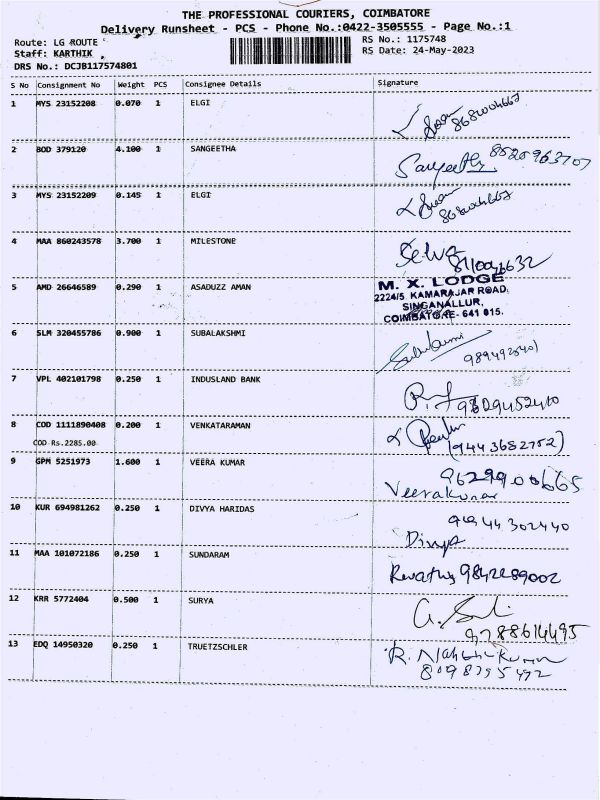 THE PROFESSIONAL COURIERS, COIMBATORE
Delivery Runsheet - PCS - Phone No.:0422-3505555 - Page No.:1
Route: LG ROUTE
RS No.: 1175748
Staff: KARTHIK ,
RS Date: 24-May-2023
DRS No.: DCJB117574801
S No Consignment No Weight PCS Consignee Details Signature
1 MYS 23152208 0.070 1 ELGI
2 BOD 379120 4.100 1 SANGEETHA Sangeetha
3 MYS 23152209 0.145 1 ELGI
4 MAA 860243578 3.700 1 MILESTONE Selva
5 AMD 26646589 0.290 1 ASADUZZ AMAN
M. X. LODGE
2224/5. KAMARAJAR ROAD.
SINGANALLUR,
COIMBATORE- 641 015.
6 SLM 320455786 0.900 1 SUBALAKSHMI
7 VPL 402101798 0.250 1 INDUSLAND BANK
8 COD 1111890408 0.200 1 VENKATARAMAN
COD Rs.2285.00 (9443682752)
9 GPM 5251973 1.600 1 VEERA KUMAR 9629900665
Veerakumar
10 KUR 694981262 0.250 1 DIVYA HARIDAS
Divya
11 MAA 101072186 0.250 1 SUNDARAM
Revathy 9842289002
12 KRR 5772404 0.500 1 SURYA
9788614495
13 EDQ 14950320 0.250 1 TRUETZSCHLER
8098795492